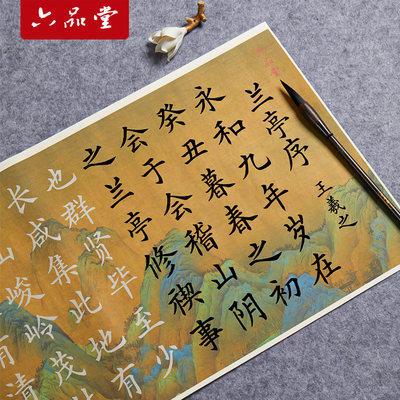 六品堂
兰亭序 王羲之
永和九年岁在
癸丑暮春之初
会于会稽山阴
之兰亭修禊事
也群贤毕至少
长咸集此地有
山峻岭茂
有清